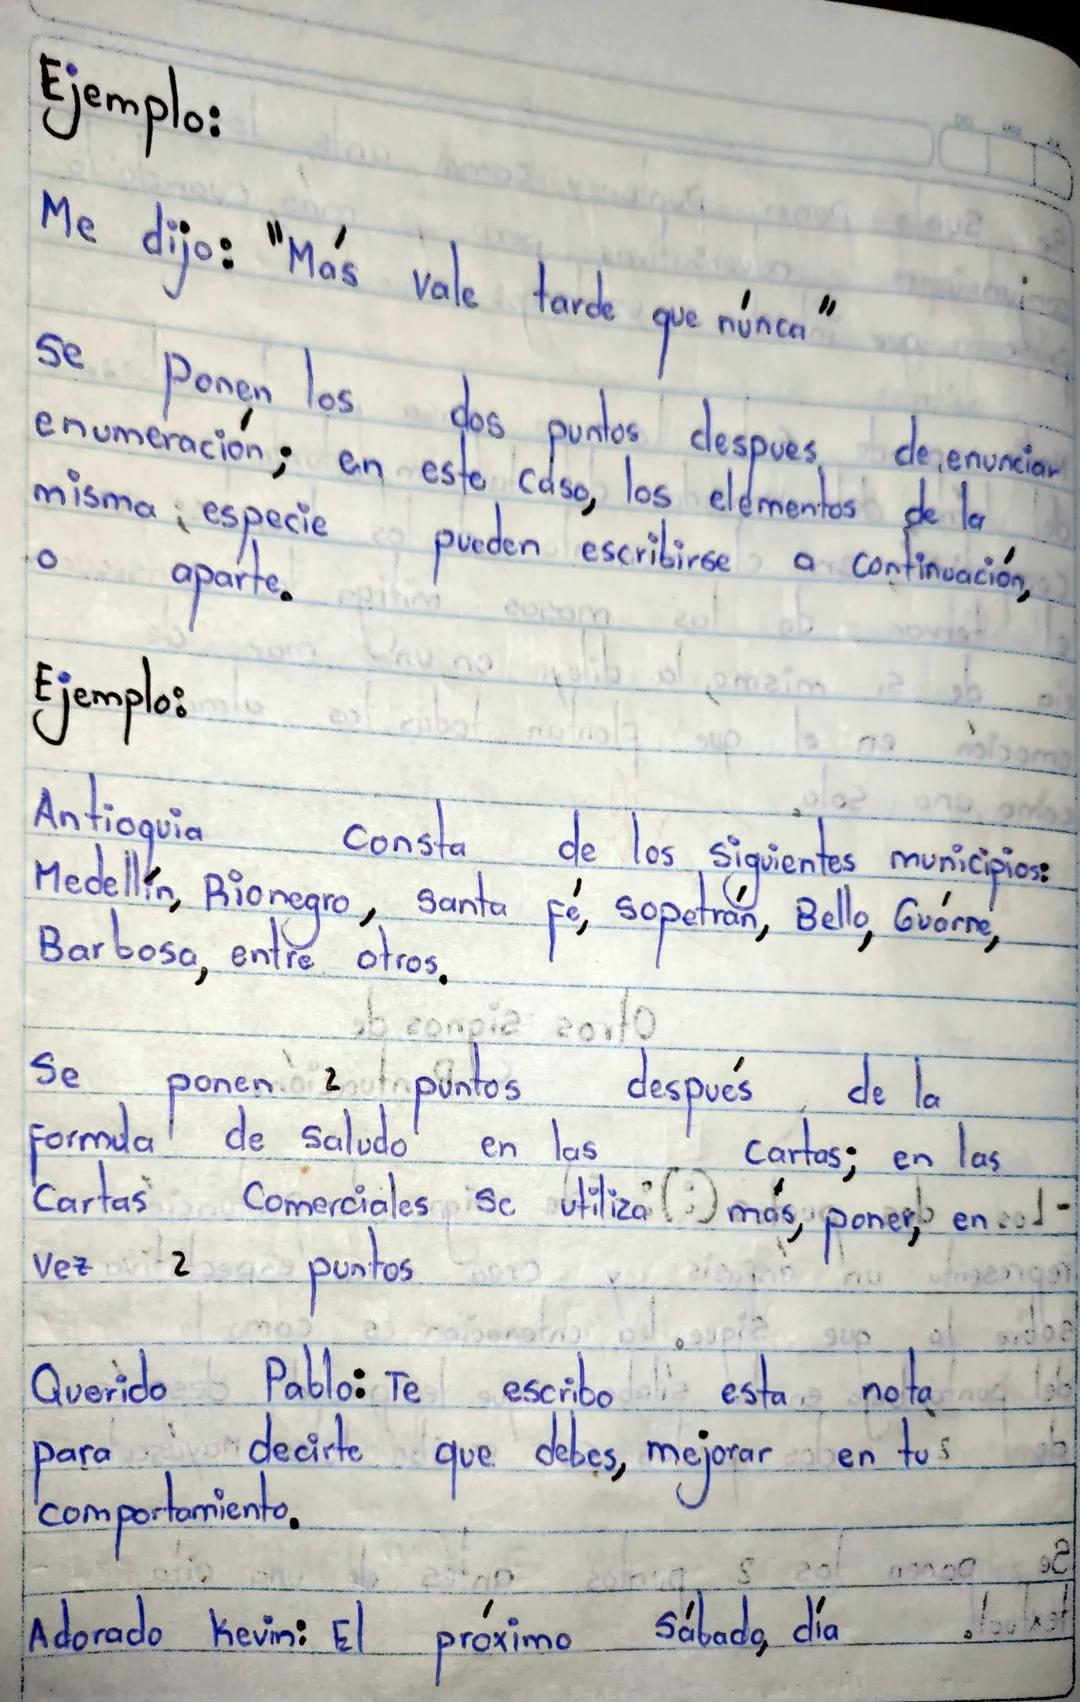 Ejemplo:
Me dijo: "Más vale tarde que núnca"
se Ponen los dos puntos despues, de enunciar
enumeración; en este caso, los elementos de la
misma especie pueden escribirse a continuación,
o aparte.
Ejemplo:
Antioquia Consta de los siguientes municipios:
Medellín, Rionegro, Santa Fé, Sopetrán, Bello, Guárne,
Barbosa, entre otros.
Se ponen 2 puntos después de la
Formula de saludo en las cartas; en las
Cartas Comerciales se utiliza (;) más, poner, en
vez 2 puntos
Querido Pablo: Te escribo esta nota
para decirte que debes, mejorar en tu
comportamiento.
Adorado Kevin: El próximo Sábado, día